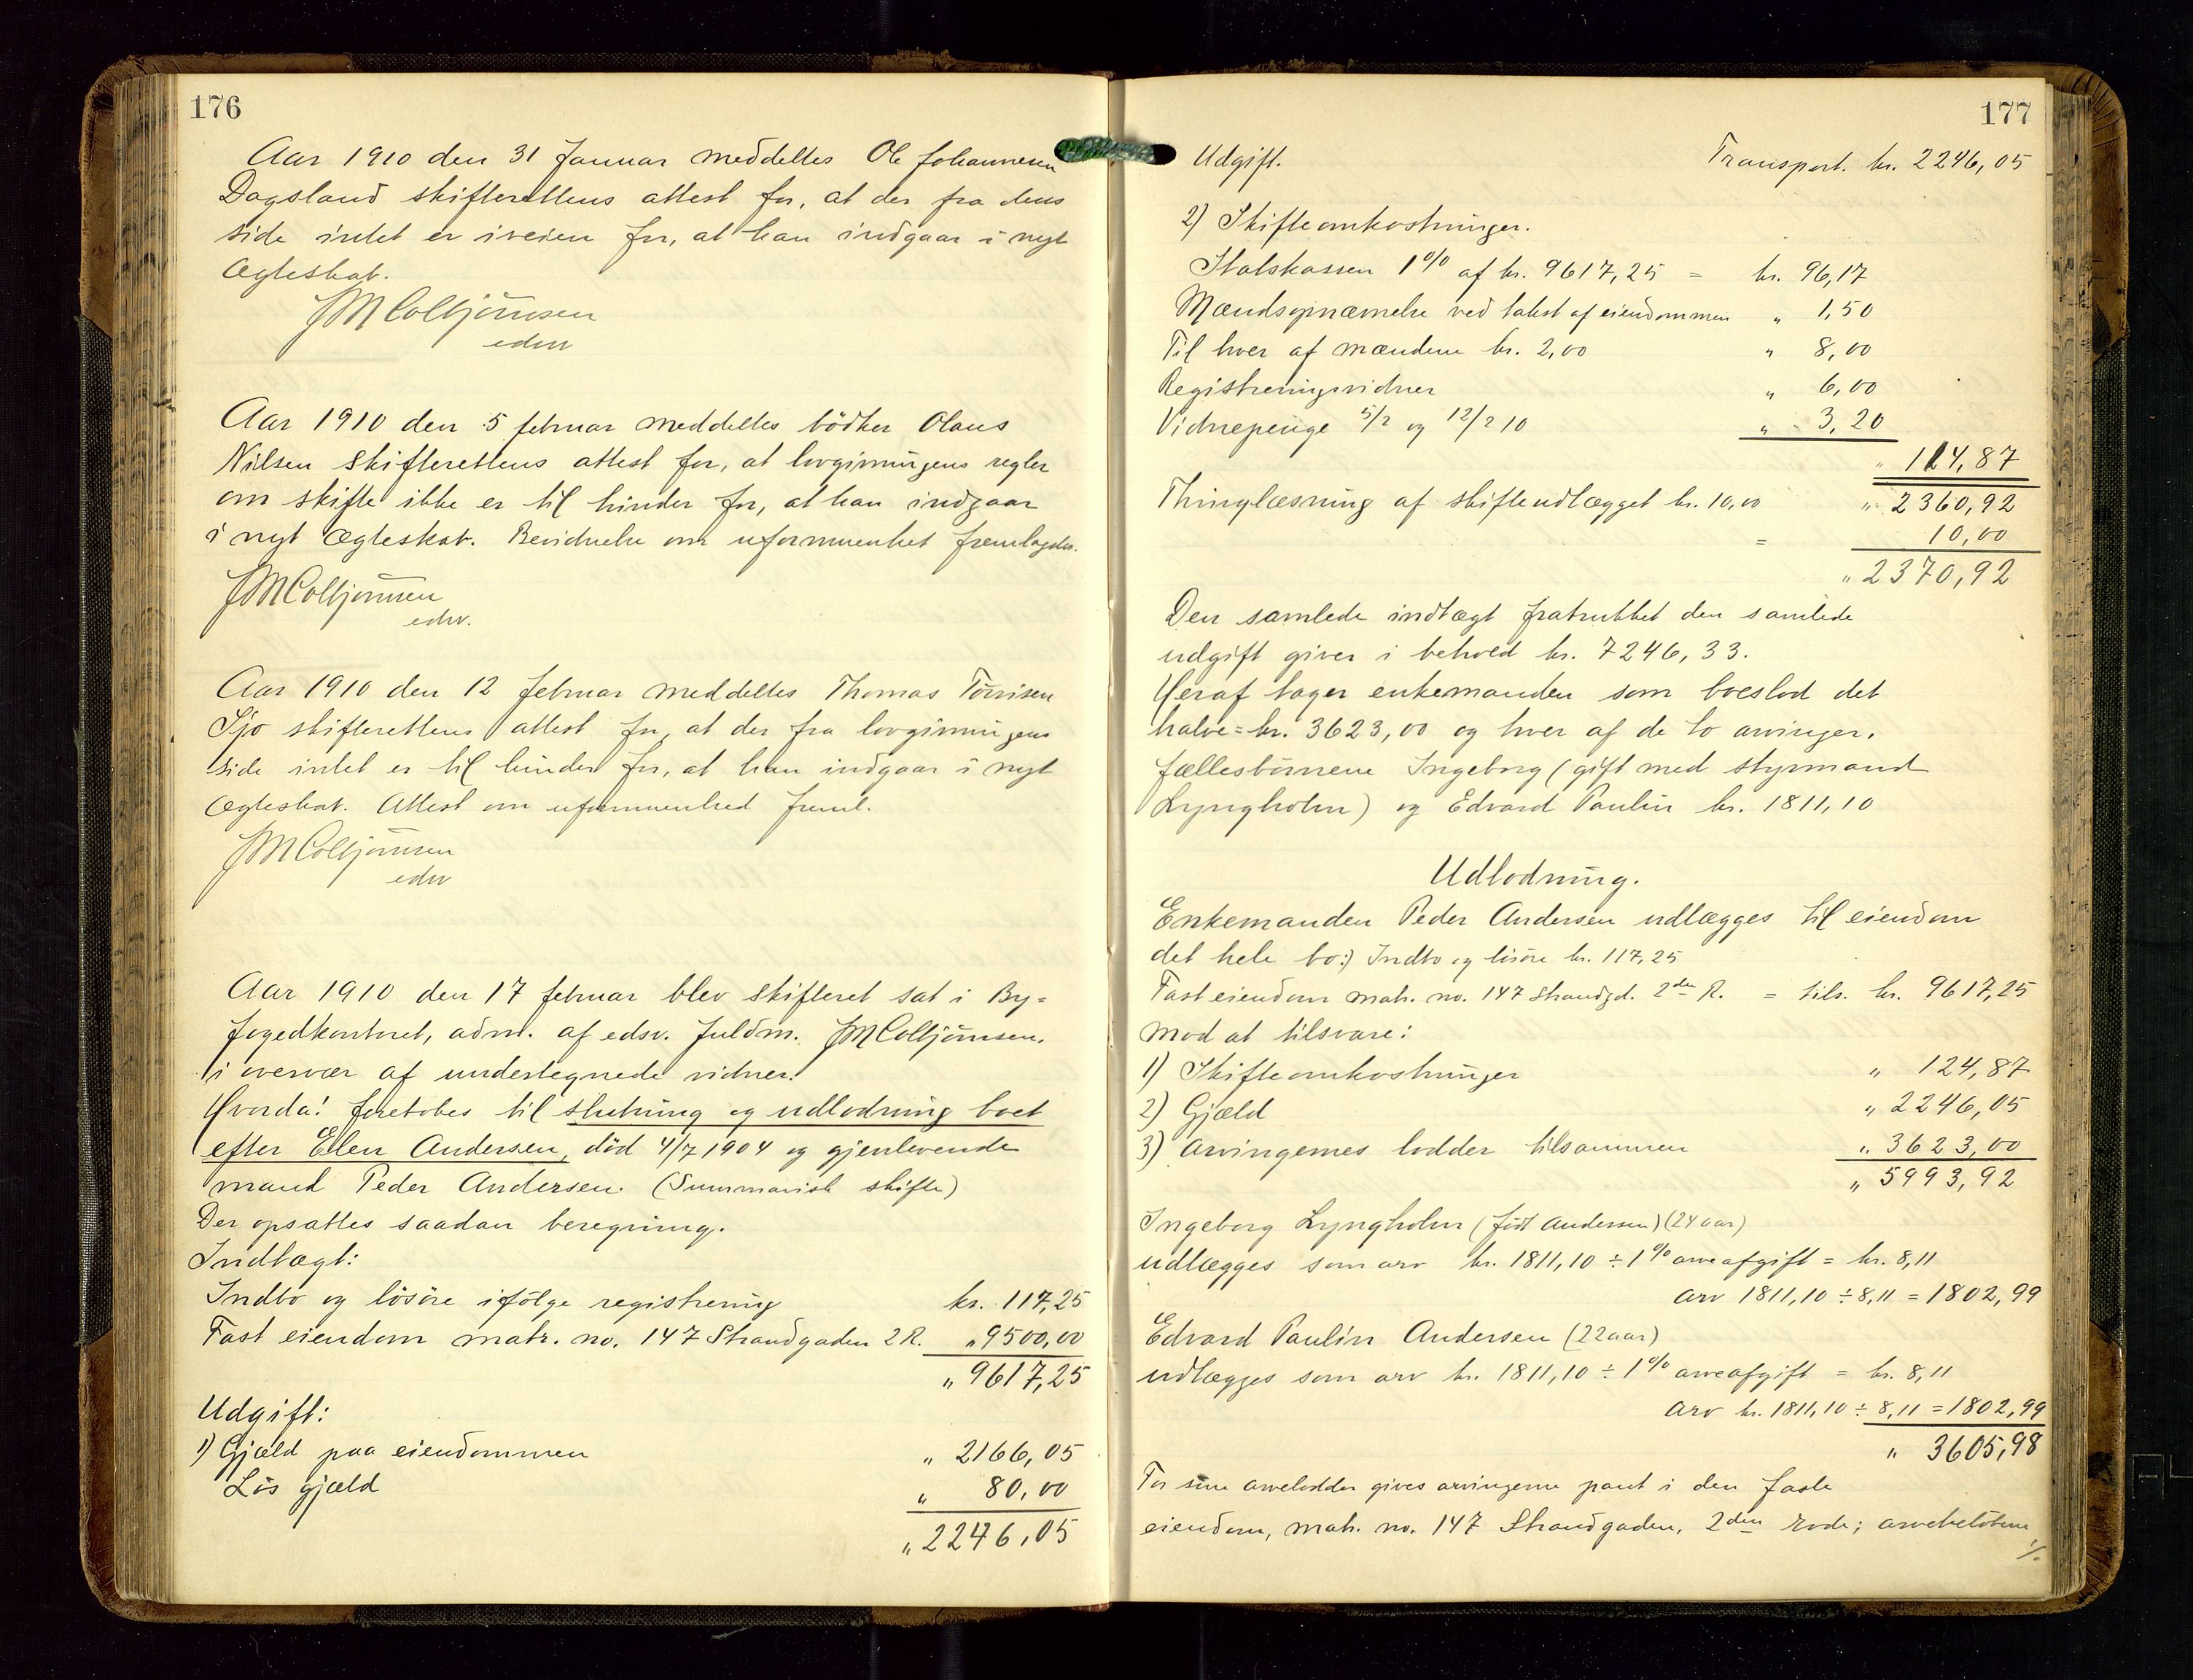 176
Aar 1910 den 31 Januar meddeltes Ole Johannesen
Dagsland skifterettens attest for, at der fra dens
side intet er iveien for, at han indgaar i nyt
Ægteskab.
JMColbjørnsen
edsv
Aar 1910 den 5 februar meddeltes bödker Olaus
Nilsen Skifterettens attest for, at lovgivningens regler
om skifte ikke er til hinder for, at han indgaar
i nyt Ægteskab. Bevidnelse om uformuenhet fremlagdes.
JMColbjørnsen
edsv.
Aar 1910 den 12 februar meddeltes Thomas Tønnisen
Sjo skifterettens attest for, at der fra lovgivningens
side intet er til hinder for, at han indgaar i nyt
Ægteskab. Attest om uformuenhed freml.
JMColbjørnsen
edsv
Aar 1910 den 17 februar blev skifteret sat i By=
fogedkontoret, adm. af edsv. fuldm. JMColbjörnsen.
i overvær af undertegnede vidner.
Hvorda! foretokes til slutning og udlodning boet
efter Elen Andersen, död 4/7 1904 og gjenlevende
mand Peder Andersen. (Summarisk skifte)
Der opsattes saadan beregning.
Indtægt:
Indbo og lösöre ifölge registrering kr. 117,25
Fast eiendom matr. no. 147 Strandgaden 2 R. „ 9500,00
„ 9617,25
Udgift:
1) Gjæld paa eiendommen „ 2166,05
Lös gjæld „ 80,00
„ 2246,05
177
Udgift. Transport. kr. 2246,05
2) Skifteomkostninger.
Statskassen 1% af kr. 9617,25 = kr. 96,17
Mændsopnævnelse ved takst af eiendommen „ 1,50
Til hver af mændene kr. 2,00 „ 8,00
Registreringsvidner „ 6,00
Vidnepenge 5/2 og 12/2 10 „ 3,20
„ 114,87
Thinglæsning af skifteudlægget kr. 10,00 „ 2360,92
= 10,00
„ 2370,92
Den samlede indtægt fratrukket den samlede
udgift giver i behold kr. 7246,33.
Heraf tager enkemanden som boeslod det
halve = kr. 3623,00 og hver af de to arvinger,
fællesbörnene Ingeborg (gift med styrmand
Lyngholm) og Edvard Paulin kr. 1811,10
Udlodning.
Enkemanden Peder Andersen udlægges til eiendom
det hele bo:) Indbo og lösöre kr. 117,25
Fast eiendom matr. no. 147 Strandgd. 2den R. = tils. kr. 9617,25
mod at tilsvare:
1) Skifteomkostninger „ 124,87
2) Gjæld „ 2246,05
3) Arvingernes lodder tilsammen „ 3623,00
„ 5993,92
Ingeborg Lyngholm (födt Andersen) (24 aar)
udlægges som arv kr. 1811,10 ÷ 1% arveafgift = kr. 8,11
Arv 1811,10 ÷ 8,11 = 1802,99
Edvard Paulin Andersen (22 aar)
udlægges som arv kr. 1811,10 ÷ 1% arveafgift = kr. 8,11
Arv kr. 1811,10 ÷ 8,11 = 1802,99
„ 3605,98
For sine arvelodder gives arvingerne pant i den faste
eiendom, matr. no. 147 Strandgaden, 2den rode; arvebelöbene
./.